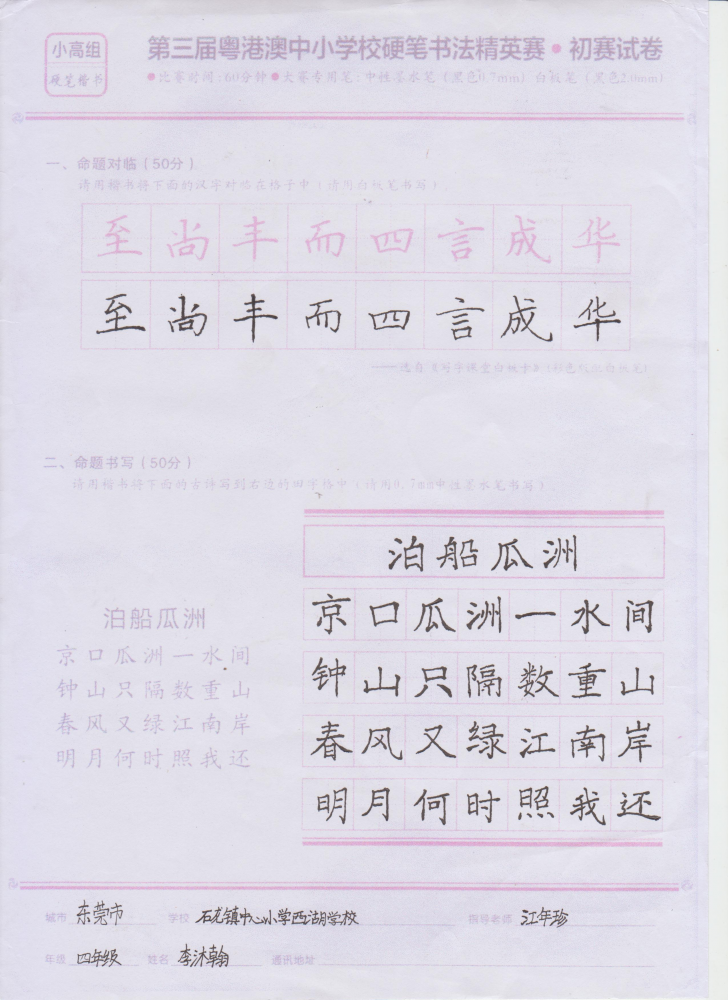 小高组
硬笔楷书
第三届粤港澳中小学校硬笔书法精英赛·初赛试卷
●比赛时间:60分钟●大赛专用笔:中性墨水笔(黑色0.7mm) 白板笔(黑色2.0mm)
一、命题对临(50分)
请用楷书将下面的汉字对临在格子中(请用白板笔书写)
至尚丰而四言成华
至尚丰而四言成华
——选自《写字课堂白板卡》
二、命题书写(50分)
请用楷书将下面的古诗写到右边的田字格中(请用0.7mm中性墨水笔书写)
泊船瓜洲
京口瓜洲一水间
钟山只隔数重山
春风又绿江南岸
明月何时照我还
泊船瓜洲
京口瓜洲一水间
钟山只隔数重山
春风又绿江南岸
明月何时照我还
城市 东莞市 学校 石龙镇中心小学西湖学校 指导老师 江年珍
年级 四年级 姓名 李沐翰 通讯地址